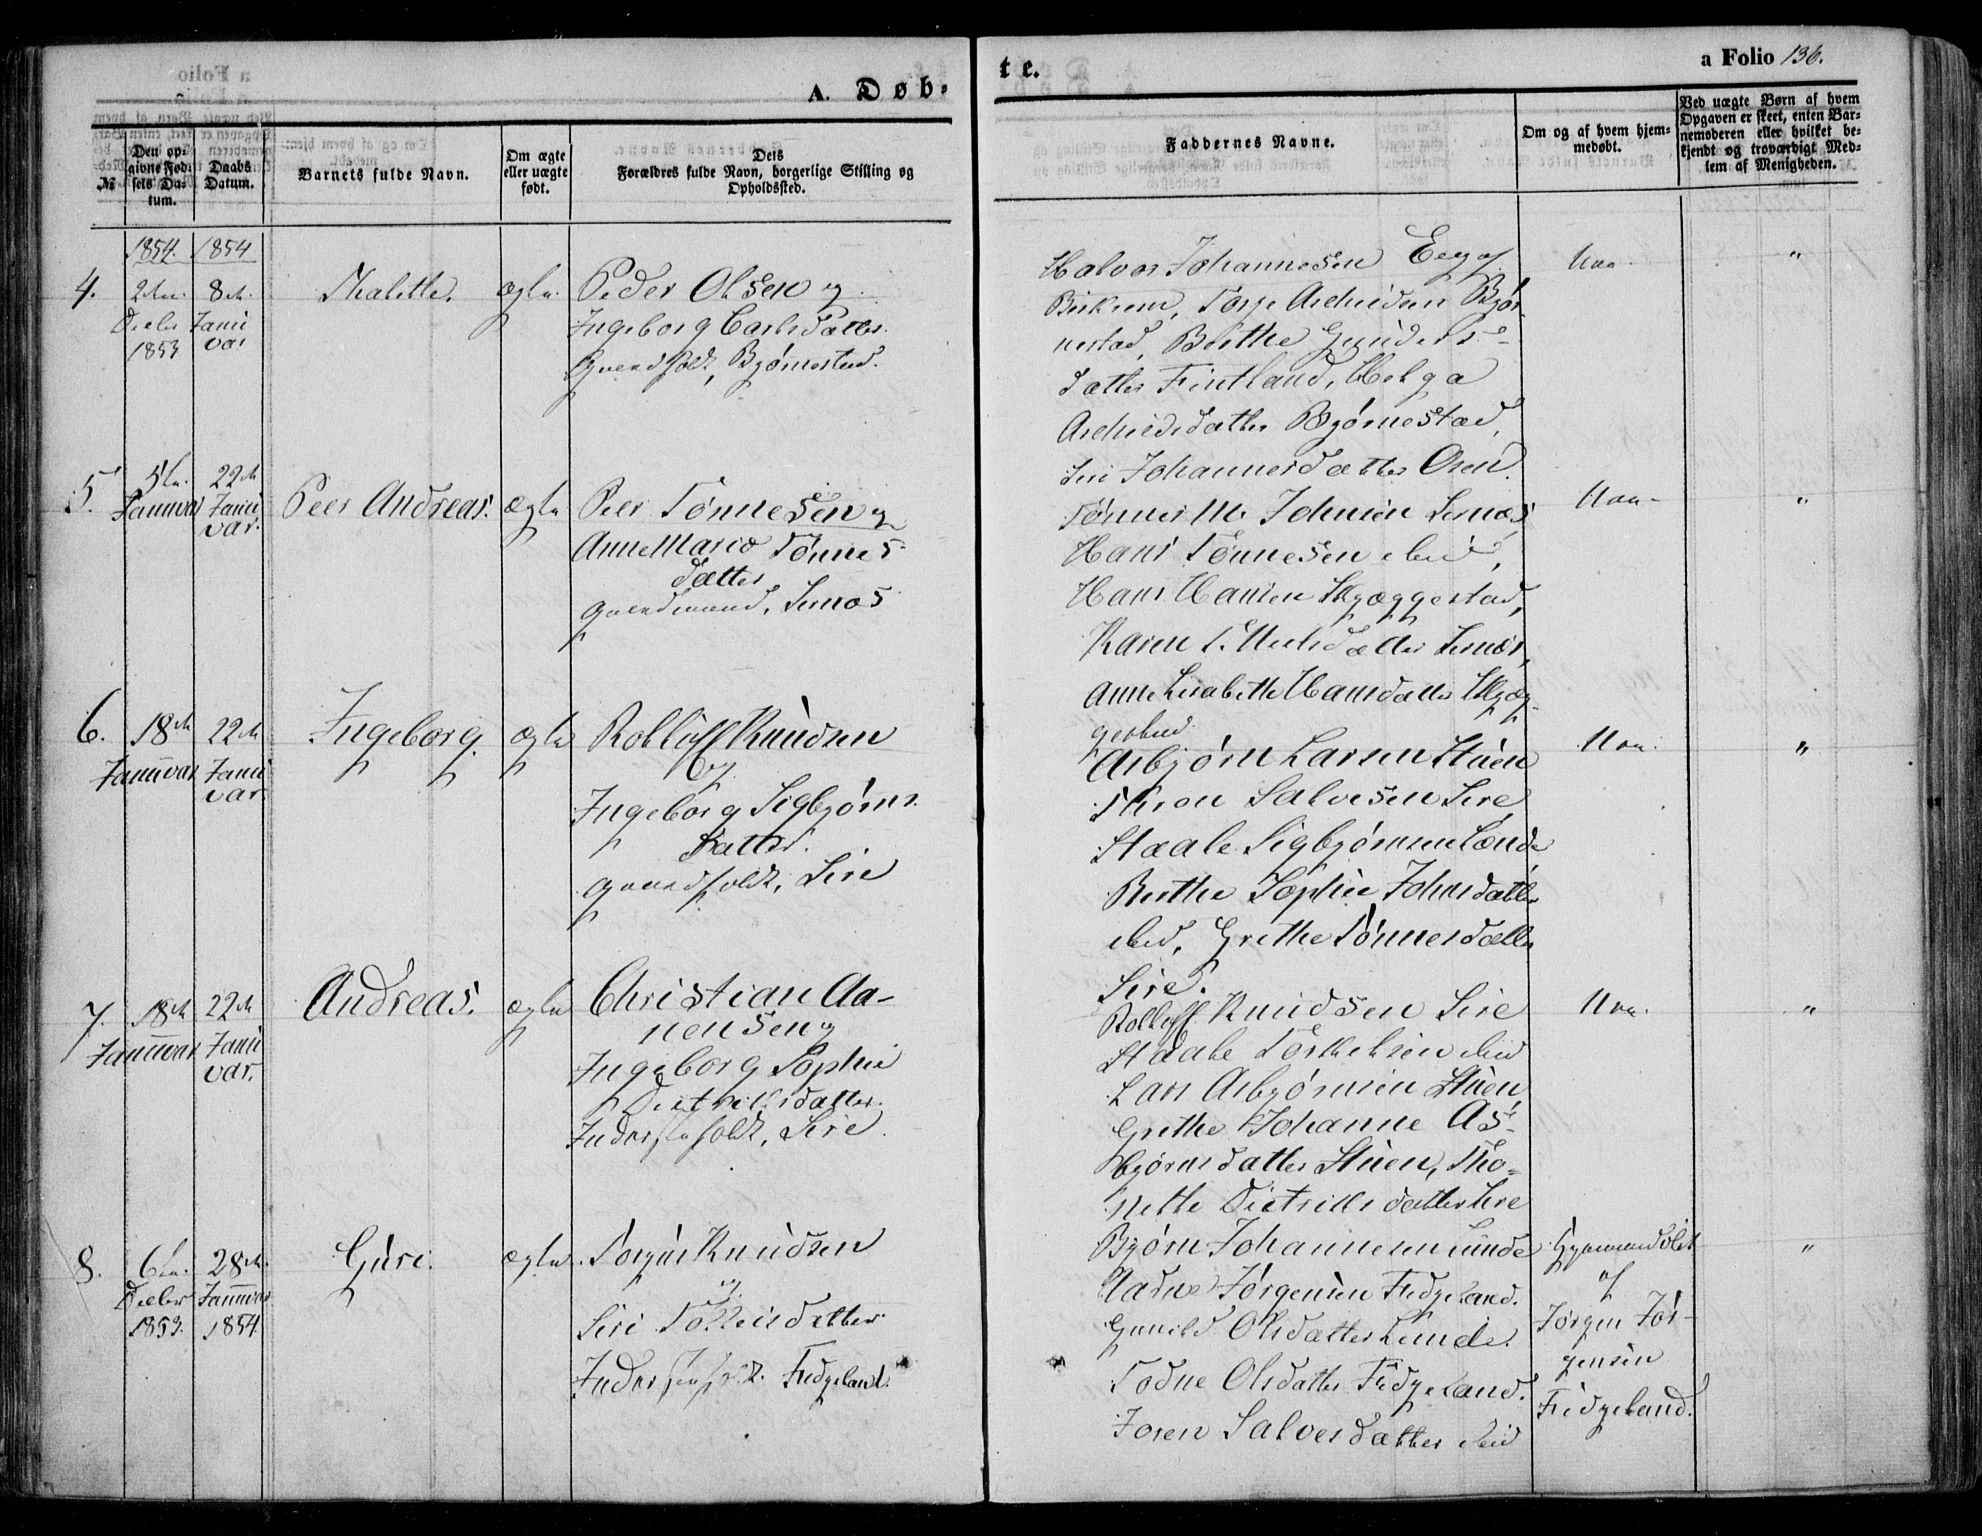 A. Døb-
te.
a Folio 136.
№
Den op-
givne Fød-
sels Da-
tum.
Daabs
Datum.
Barnets fulde Navn.
Om ægte
eller uægte
født.
Dets
Forældres fulde Navn, borgerlige Stilling og
Opholdssted.
Faddernes Navne.
Om og af hvem hjem-
medøbt.
Ved uægte Børn af hvem
Opgaven er skeet, enten Bar-
nemoderen eller hvilket be-
kjendt og troværdigt Med-
lem af Menigheden.
1854. 1854
4.
8de
Janu
var
1853
Thalette.
ægte
Peder Olsen og
Ingeborg Carlsdatter
Bjørnestad.
Halvor Johannesen Eeg af
Birkrem, Torje Andreasen Bjør-
nestad, Berthe Gunders-
datter Fintland, Helga
datter Bjørnestad,
Siri Johannesdatter Osen.
Naa.
"
5.
5te
Januar
22de
Janu
var.
Peer Andreas.
ægte
Peer Tønnesen og
Anne Maria Tønnes
datter
Sirnæs
Tønnes M. Johnsen Sirnæs
Hans Tønnesen ibid,
Hans Hansen Skjæggestad,
Karen T. Nielsdatter Sirnæs,
Anne Lisabethe Hansdatter Skjæg-
gestad
Naa.
"
6.
18de
Januar
22de
Janu
var
Ingeborg.
ægte
Rolluff Knudsen
og
Ingeborg Sigbjørns
datter.
Sire
Asbjørn Larsen Stuen
Thron Salvesen Sire
Staale Sigbjørnsen Lande
Berthe Sophie Johnsdatter
ibid, Grethe Tønnesdatter
Sire.
Naa.
"
7.
18de
Januar
22de
Janu
var.
Andreas.
ægte
Christian Aa-
nensen og
Ingeborg Sophie
Dietriksdatter.
Inderstefolk, Sire.
Rolluff Knudsen Sire
Staale Torkelsen ibid
Lars Asbjørnsen Stuen,
Grethe Johanne As-
bjørnsdatter Stuen, Tho-
nette Dietriksdatter Sire
Naa.
"
8.
6te
Decbr
1853.
28de
Januar
1854.
Guri.
ægte
Torgus Knudsen
og
Siri Tolleisdatter
Inderstefolk. Fidjeland.
Bjørn Johannesen Lunde
Aadne Jørgensen Fidjeland.
Gunild Olsdatter Lunde.
Todne Olsdatter Fidjeland.
Joren Salvesdatter ibid
Hjemmedøbt
af
Jørgen Jør-
gensen
Fidjeland.
"